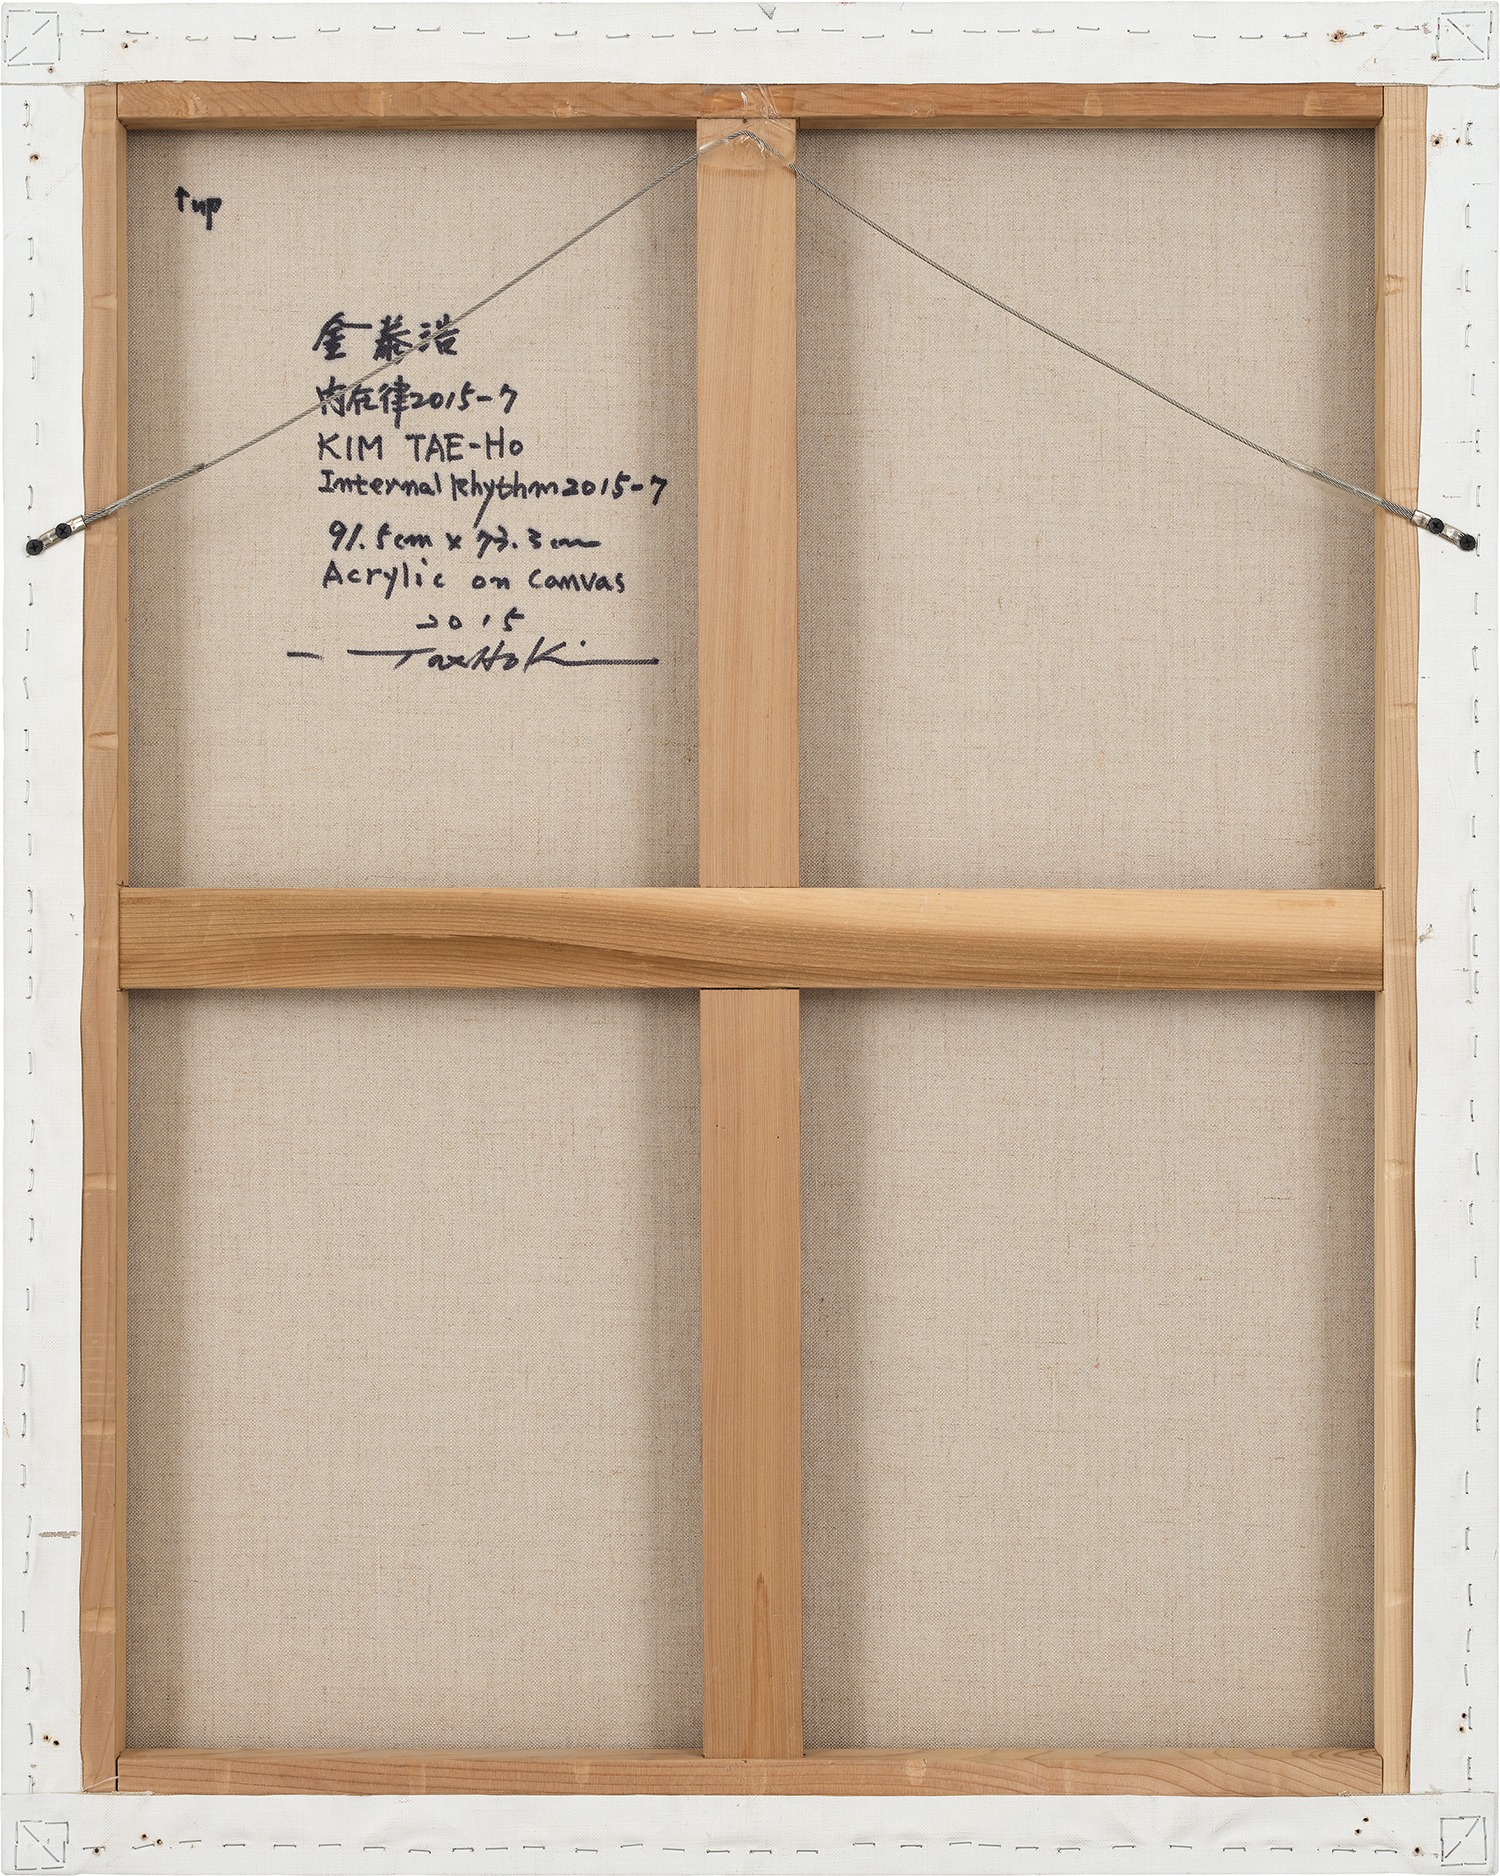 ↑up
金泰浩
内在律2015-7
KIM TAE-Ho
Internal Rhythm2015-7
91.5cm x 73.3cm
Acrylic on canvas
2015
TaeHo Kim